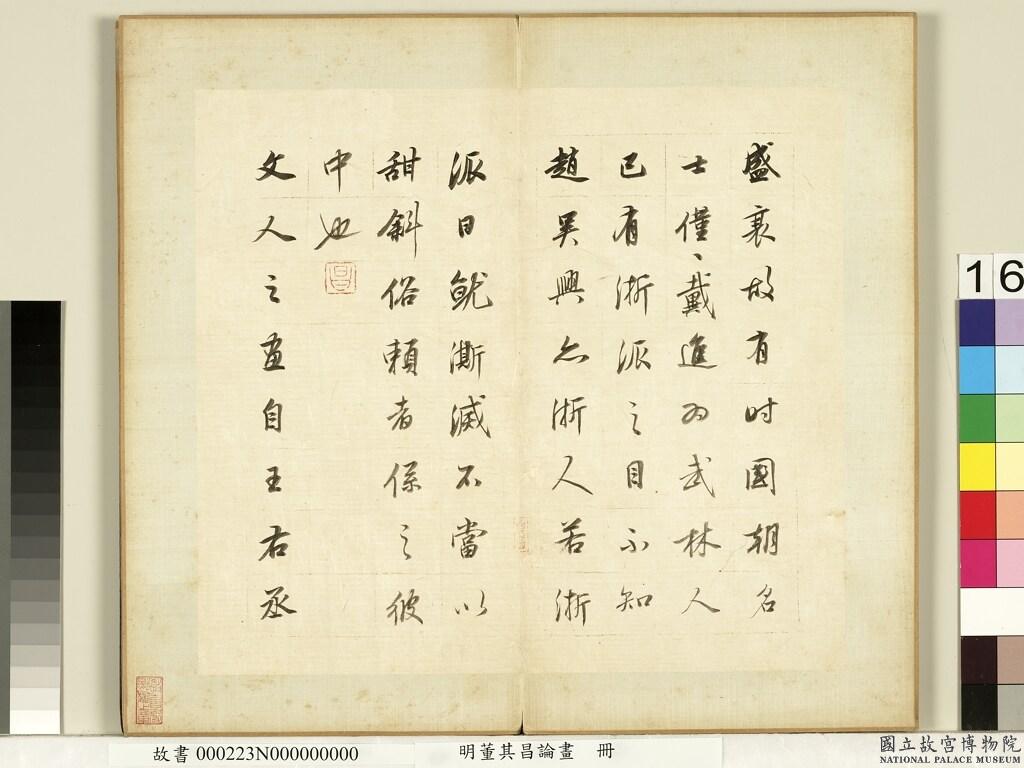 盛衰故有時國朝名
士僅、戴進為武林人
已有浙派之目不知
趙吳興亦浙人若浙
派日就澌滅不當以
甜斜俗賴者係之彼
中也
文人之畫自王右丞
16
故書 000223N000000000
明董其昌論畫 冊
國立故宮博物院
NATIONAL PALACE MUSEUM